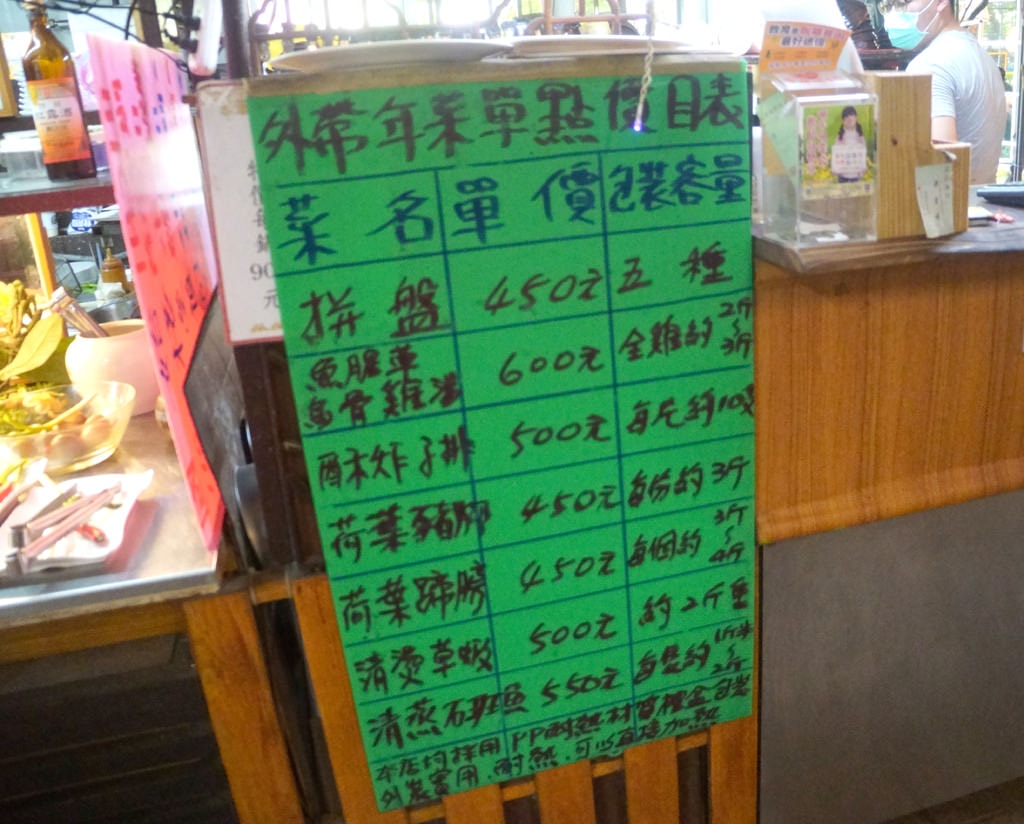 外帶年菜單點價目表
菜名 單價 包裝容量
拼盤 450元 五種
魚腥草
烏骨雞湯 600元 全雞約2斤~3斤
酥炸子排 500元 每斤約10隻
荷葉豬腳 450元 每份約3斤
荷葉蹄膀 450元 每個約3斤~4斤
清燙草蝦 500元 約2斤重
清蒸石斑魚 550元 每隻約1斤半~2斤
本店均採用PP耐熱材質禮盒包裝
外裝實用.耐熱.可以直接加熱
90
元